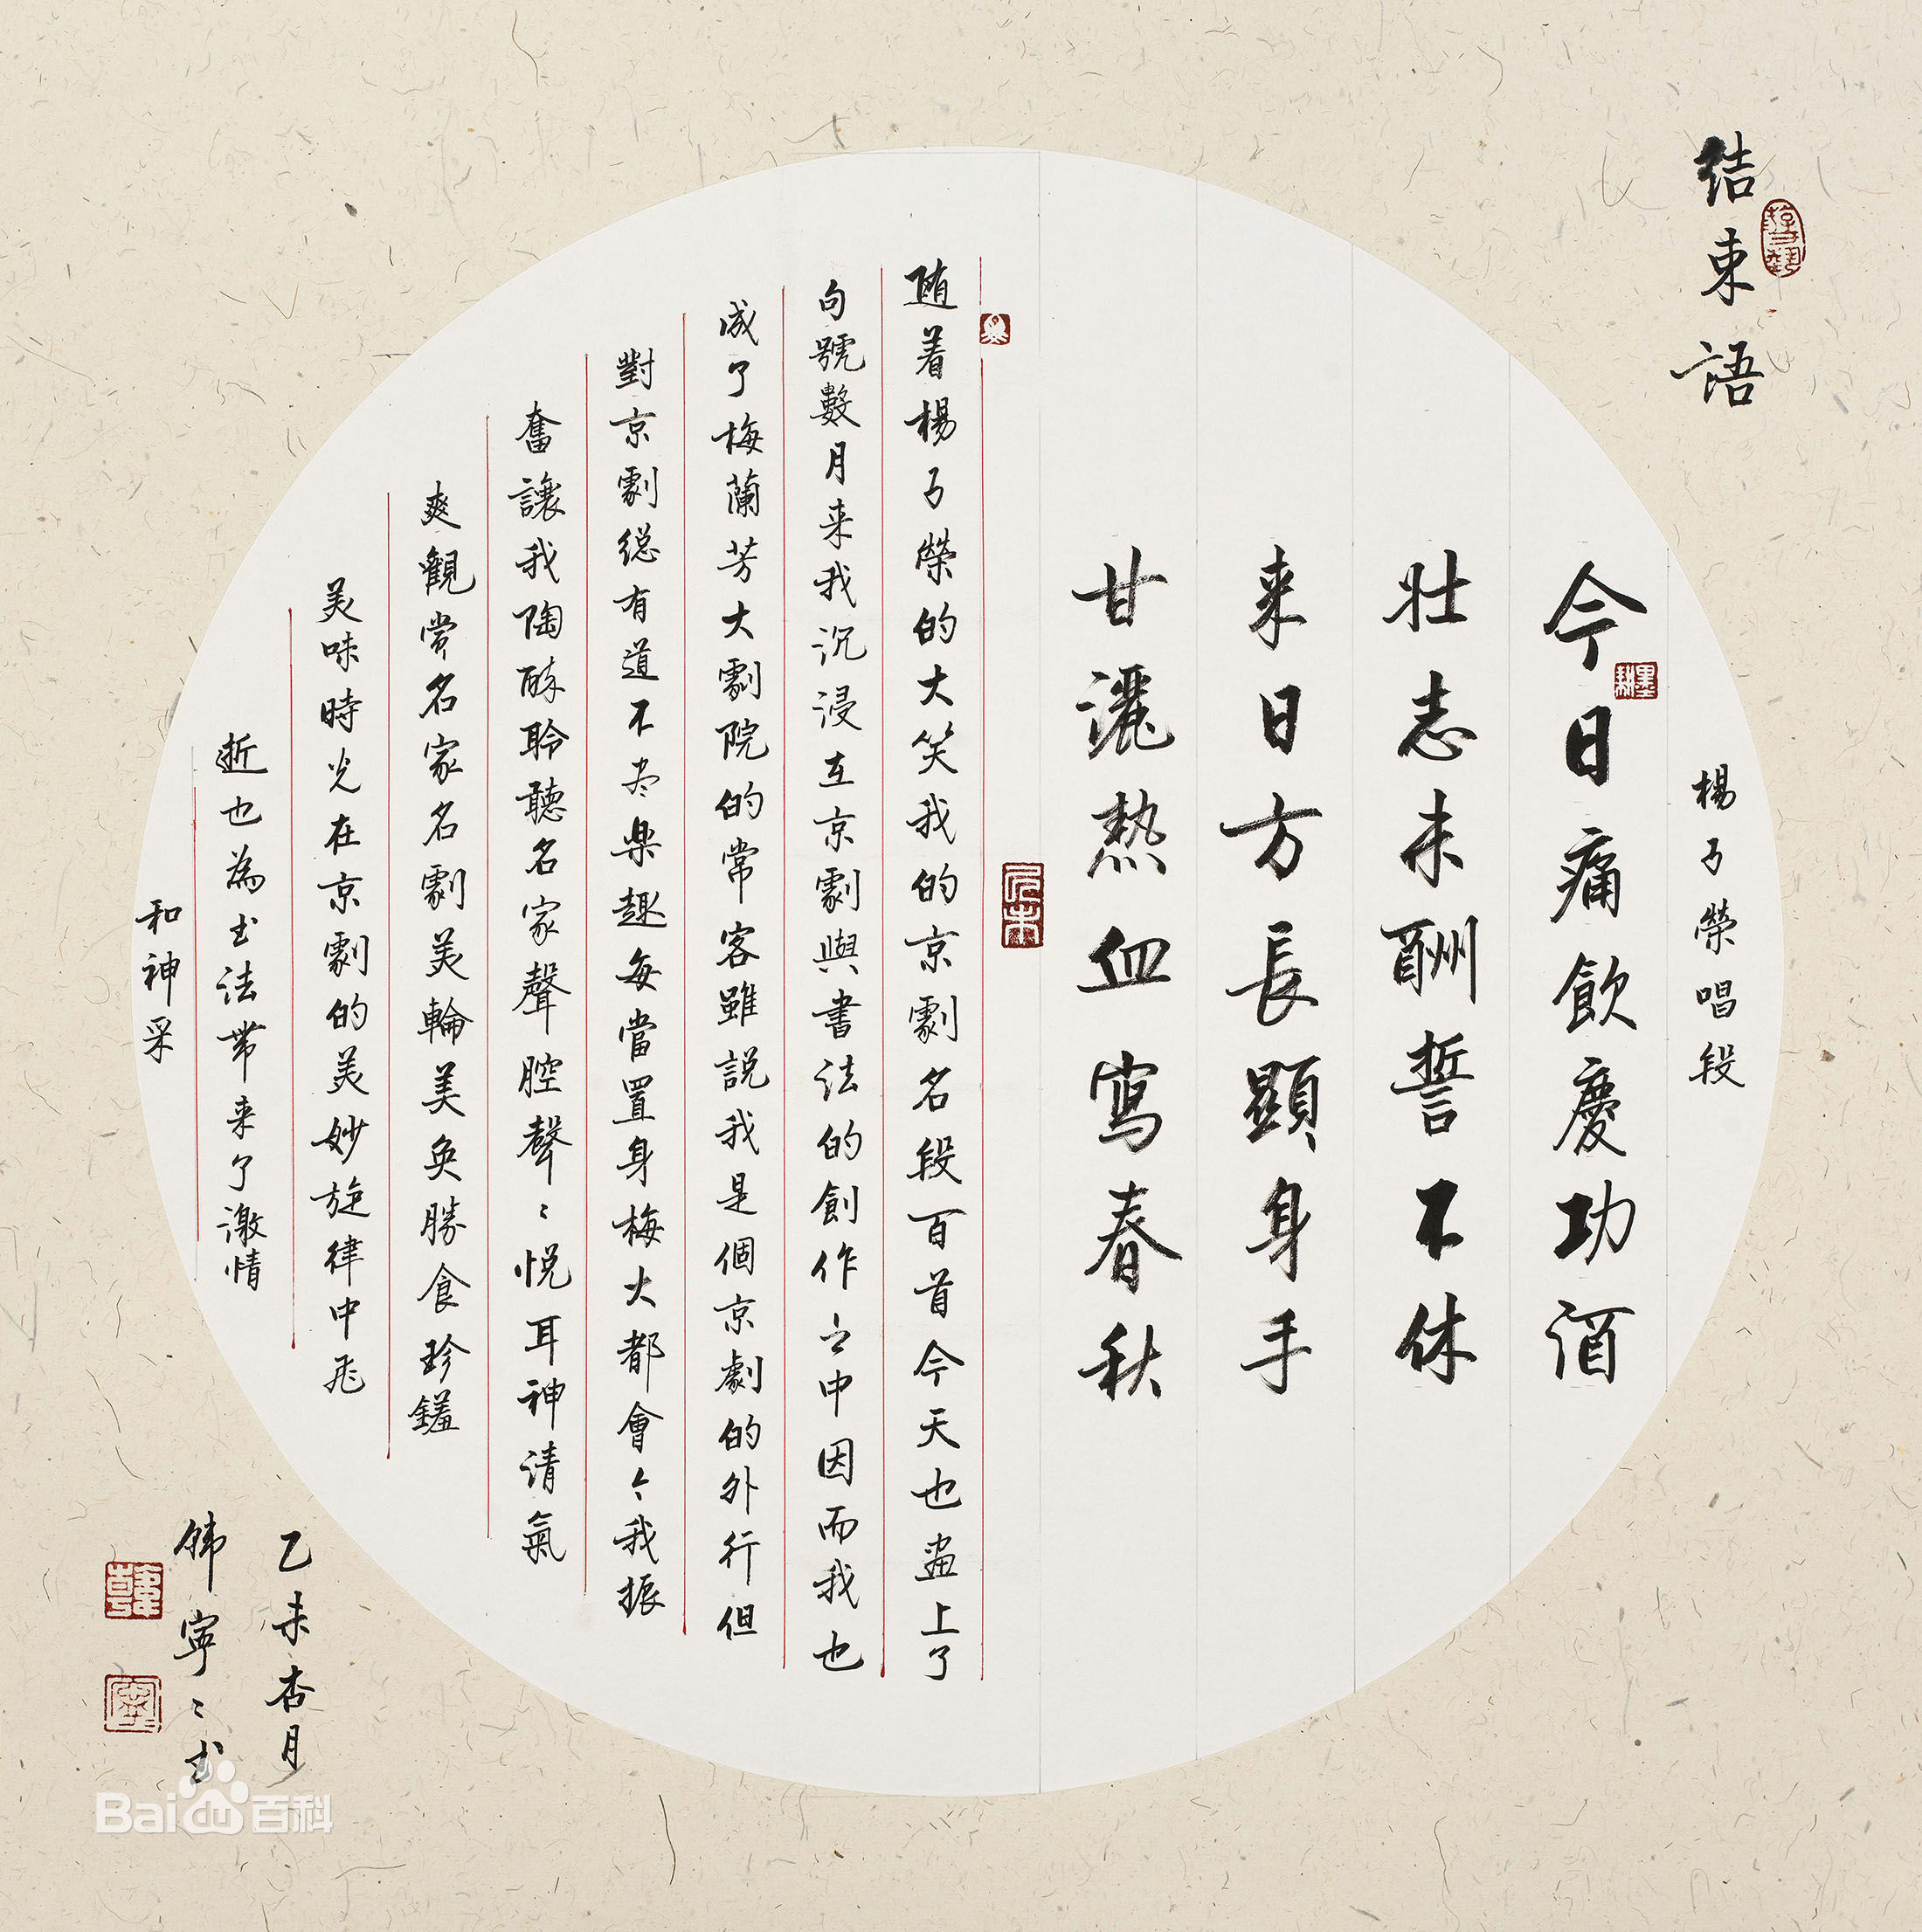 结束語
楊子榮唱段
今日痛飲慶功酒
壯志未酬誓不休
来日方長顯身手
甘灑熱血寫春秋
随着楊子榮的大笑我的京劇名段百首今天也畫上了
句號數月来我沉浸在京劇與書法的創作之中因而我也
成了梅蘭芳大劇院的常客雖説我是個京劇的外行但
對京劇總有道不尽樂趣每當置身梅大都會令我振
奮讓我陶醉聆聽名家聲腔聲〻悦耳神清氣
爽觀賞名家名劇美輪美奐勝食珍饈
美味時光在京劇的美妙旋律中飛
逝也為书法带来了激情
和神采
乙未杏月
韩寧〻书
乙未
墨耕
Bai百科